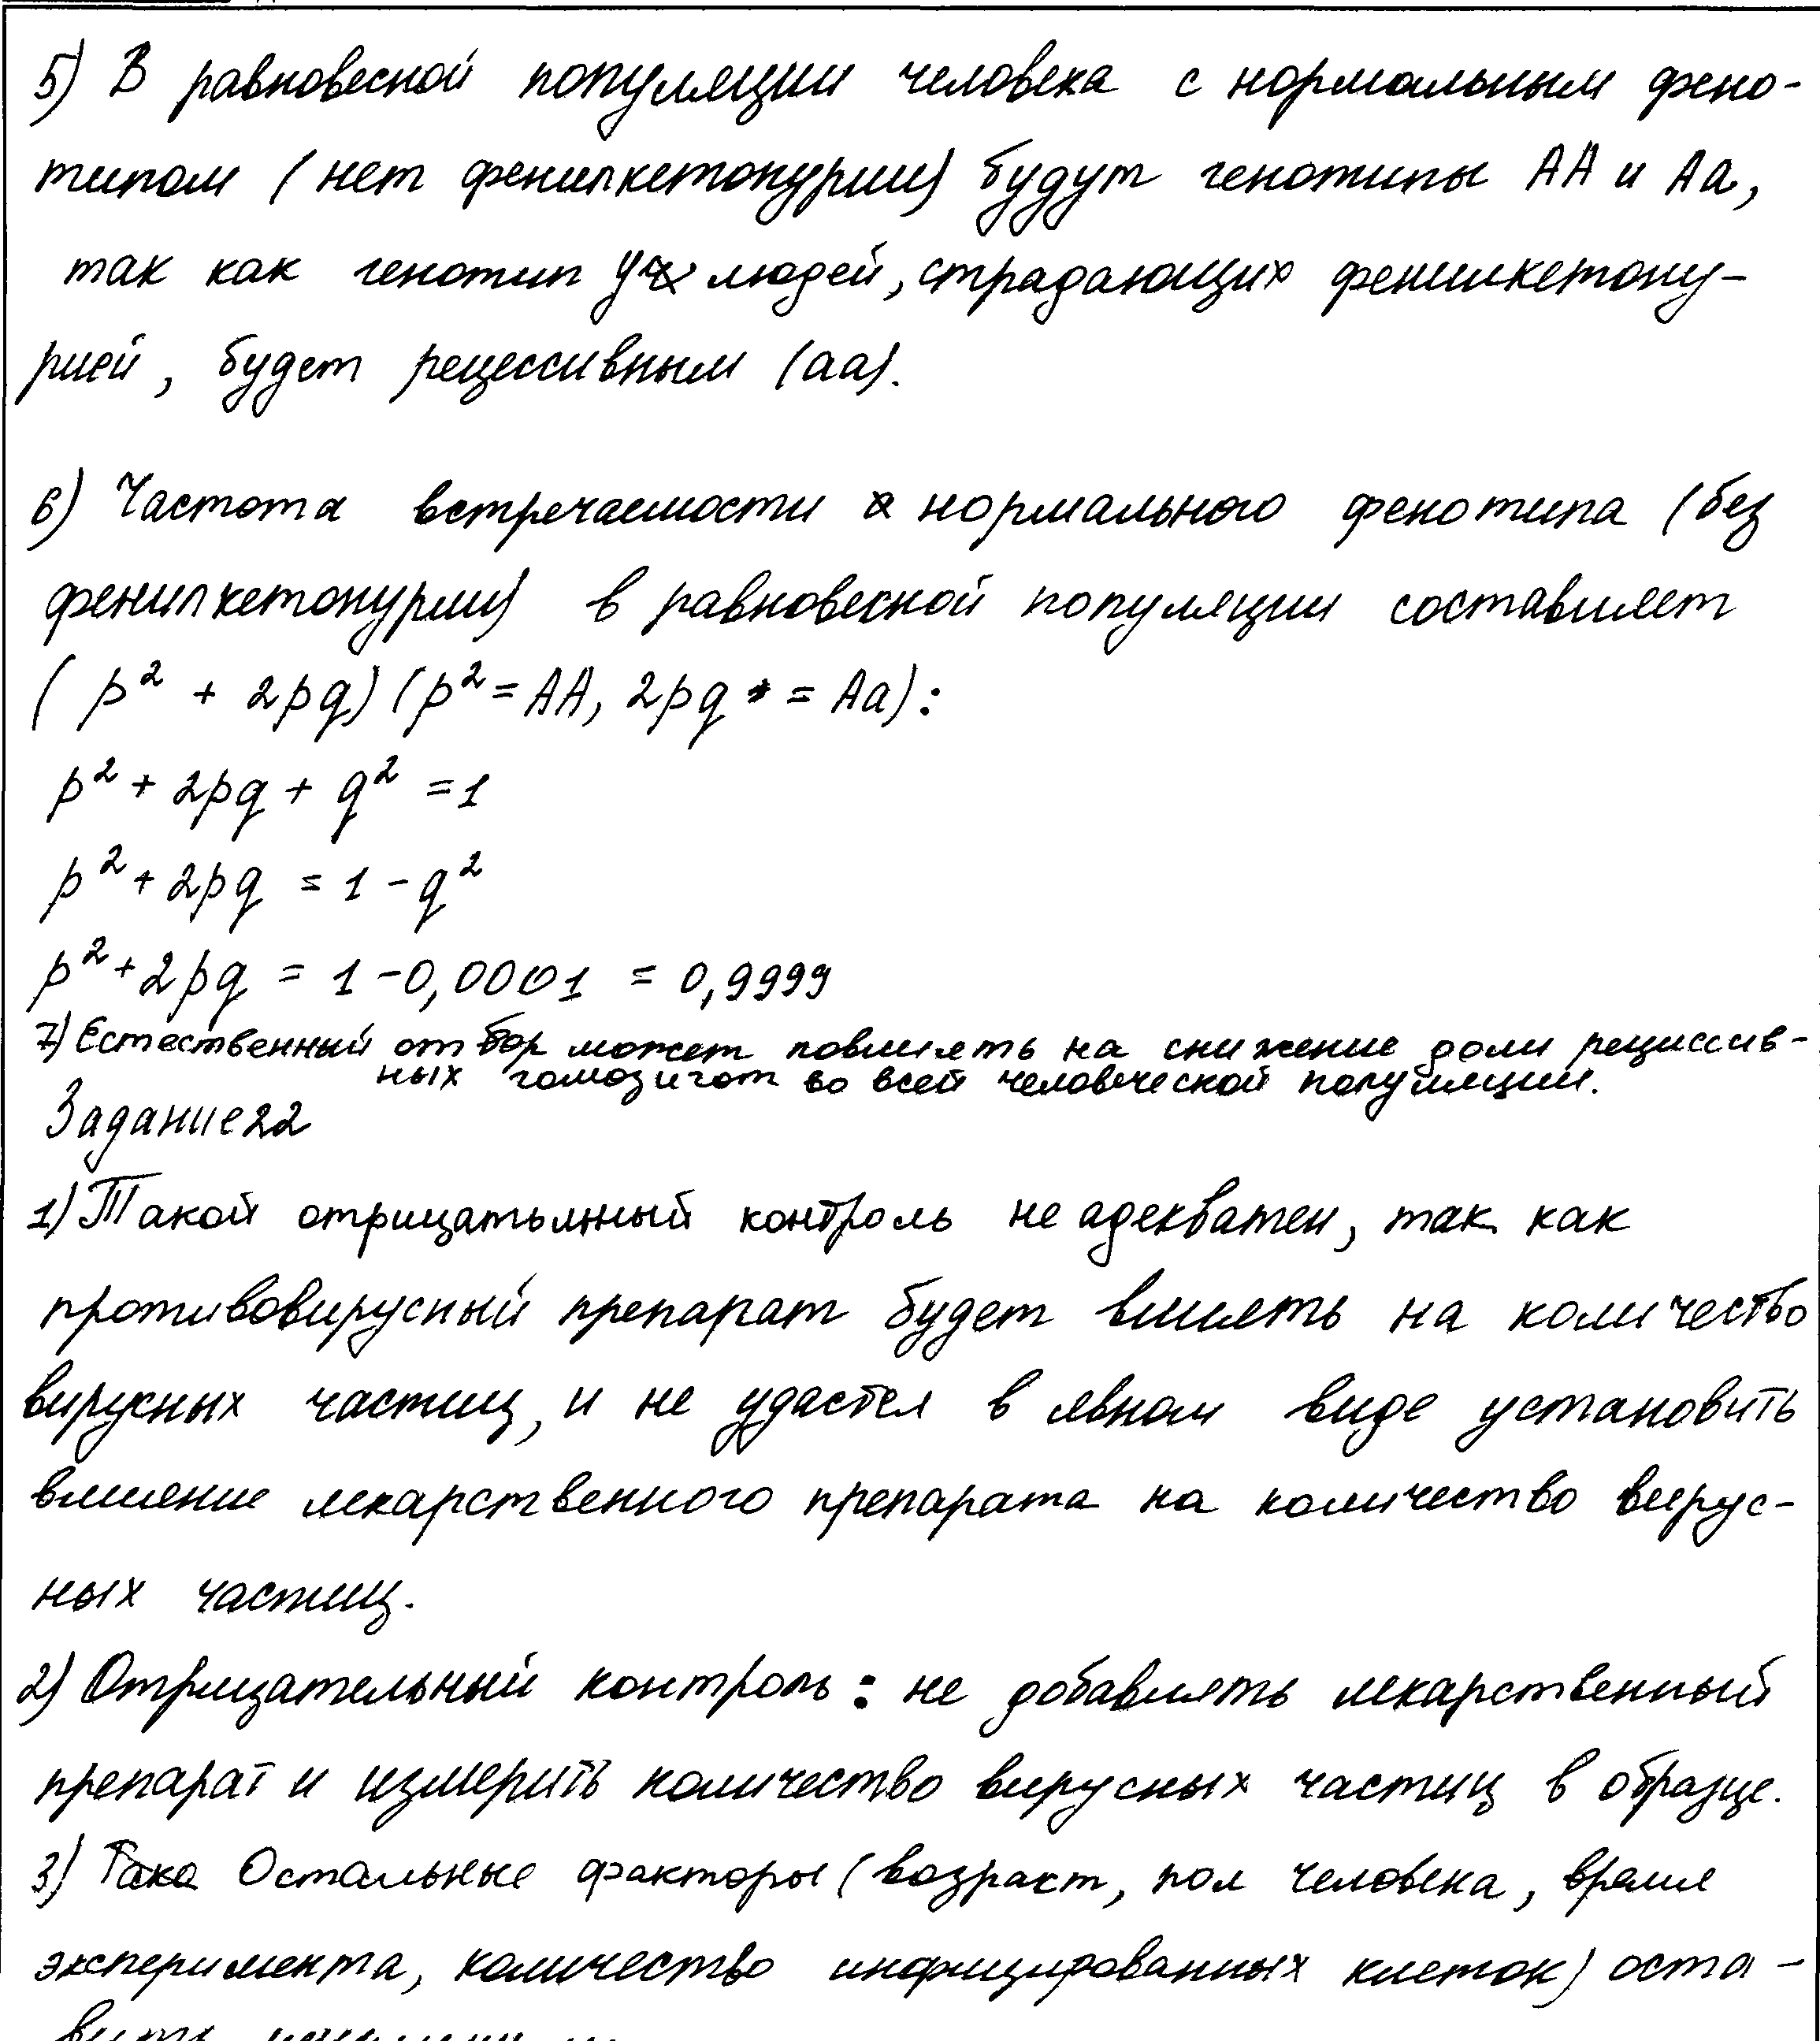 5) В равновесной популяции человека с нормальным фено-
типом (нет фенилкетонурии) будут генотипы АА и Аа,
так как генотип у людей, страдающих фенилкетону-
рией, будет рецессивным (аа).
6) Частота встречаемости нормального фенотипа (без
фенилкетонурии) в равновесной популяции составляет
(p² + 2pq) (p² = АА, 2pq = Аа):
p² + 2pq + q² = 1
p² + 2pq = 1 - q²
p² + 2pq = 1 - 0,0001 = 0,9999
7) Естественный отбор может повлиять на снижение доли рециссив-
ных гомозигот во всей человеческой популяции.
Задание 22
1) Такой отрицательный контроль не адекватен, так как
противовирусный препарат будет влиять на количество
вирусных частиц, и не удастся в явном виде установить
влияние лекарственного препарата на количество вирус-
ных частиц.
2) Отрицательный контроль: не добавлять лекарственный
препарат и измерить количество вирусных частиц в образце.
3) Остальные факторы (возраст, пол человека, время
эксперимента, количество инфицированных клеток) оста-